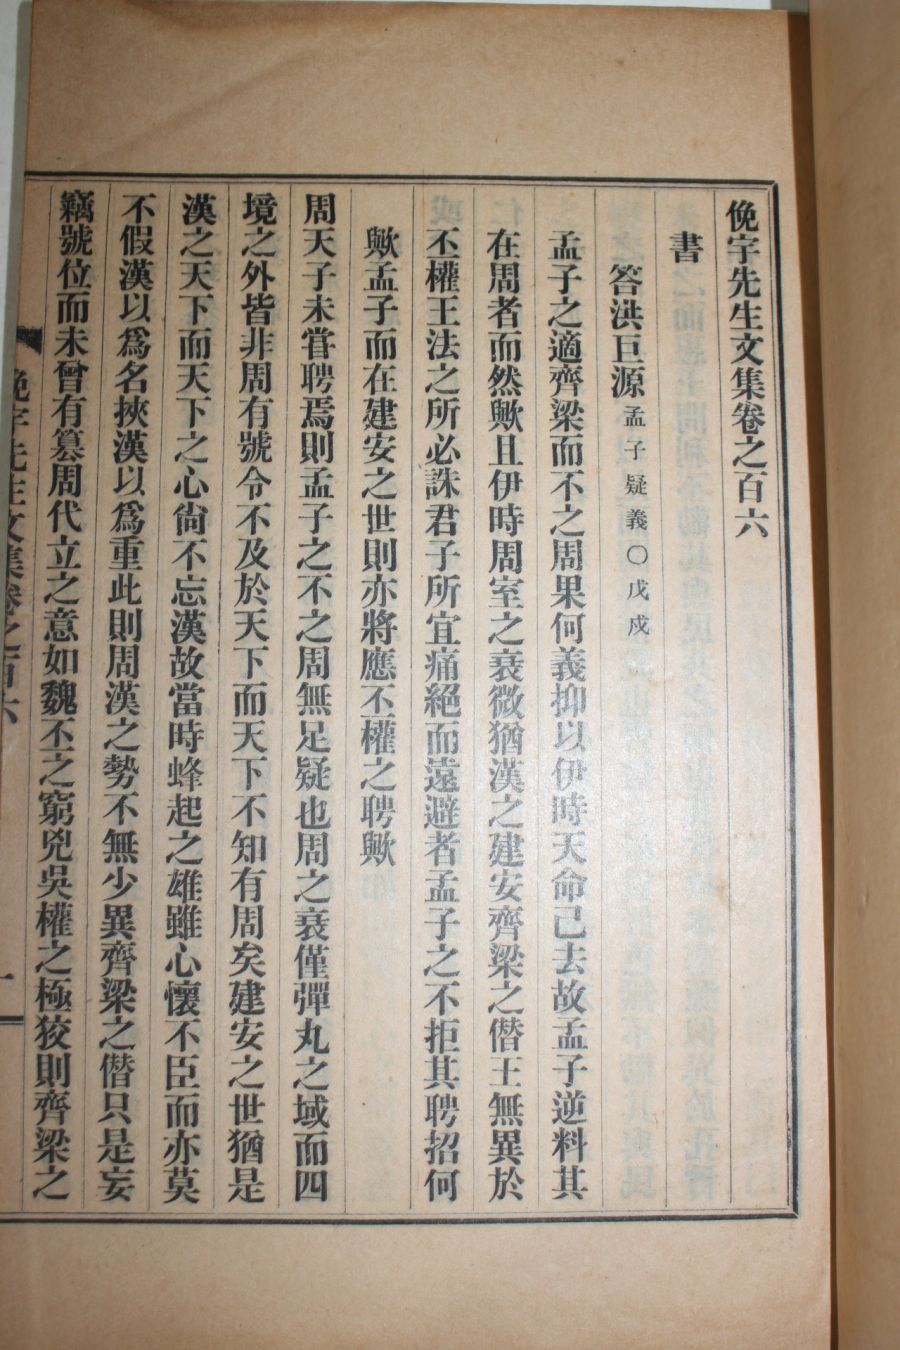 俛宇先生文集卷之百六
書
答洪巨源孟子疑義○戊戌
孟子之適齊梁而不之周果何義抑以伊時天命已去故孟子逆料其
在周者而然歟且伊時周室之衰微猶漢之建安齊梁之僭王無異於
丕權王法之所必誅君子所宜痛絕而遠避者孟子之不拒其聘招何
歟孟子而在建安之世則亦將應丕權之聘歟
周天子未甞聘焉則孟子之不之周無足疑也周之衰僅彈丸之域而四
境之外皆非周有號令不及於天下而天下不知有周矣建安之世猶是
漢之天下而天下之心尙不忘漢故當時蜂起之雄雖心懷不臣而亦莫
不假漢以爲名挾漢以爲重此則周漢之勢不無少異齊梁之僭只是妄
竊號位而未曾有簒周代立之意如魏丕之窮兇吳權之極狡則齊梁之
俛宇先生文集卷之百六
一